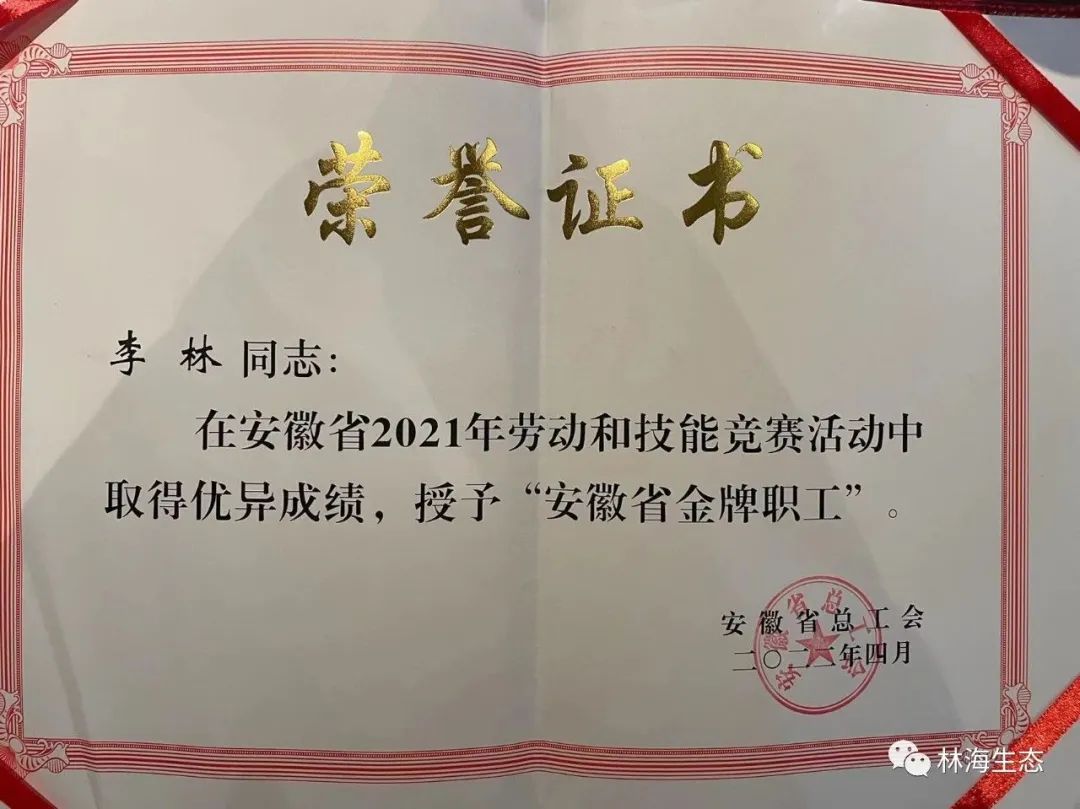 荣誉证书
李 林 同志：
在安徽省2021年劳动和技能竞赛活动中
取得优异成绩，授予“安徽省金牌职工”。
安徽省总工会
二〇二二年四月
安徽省总工会
林海生态